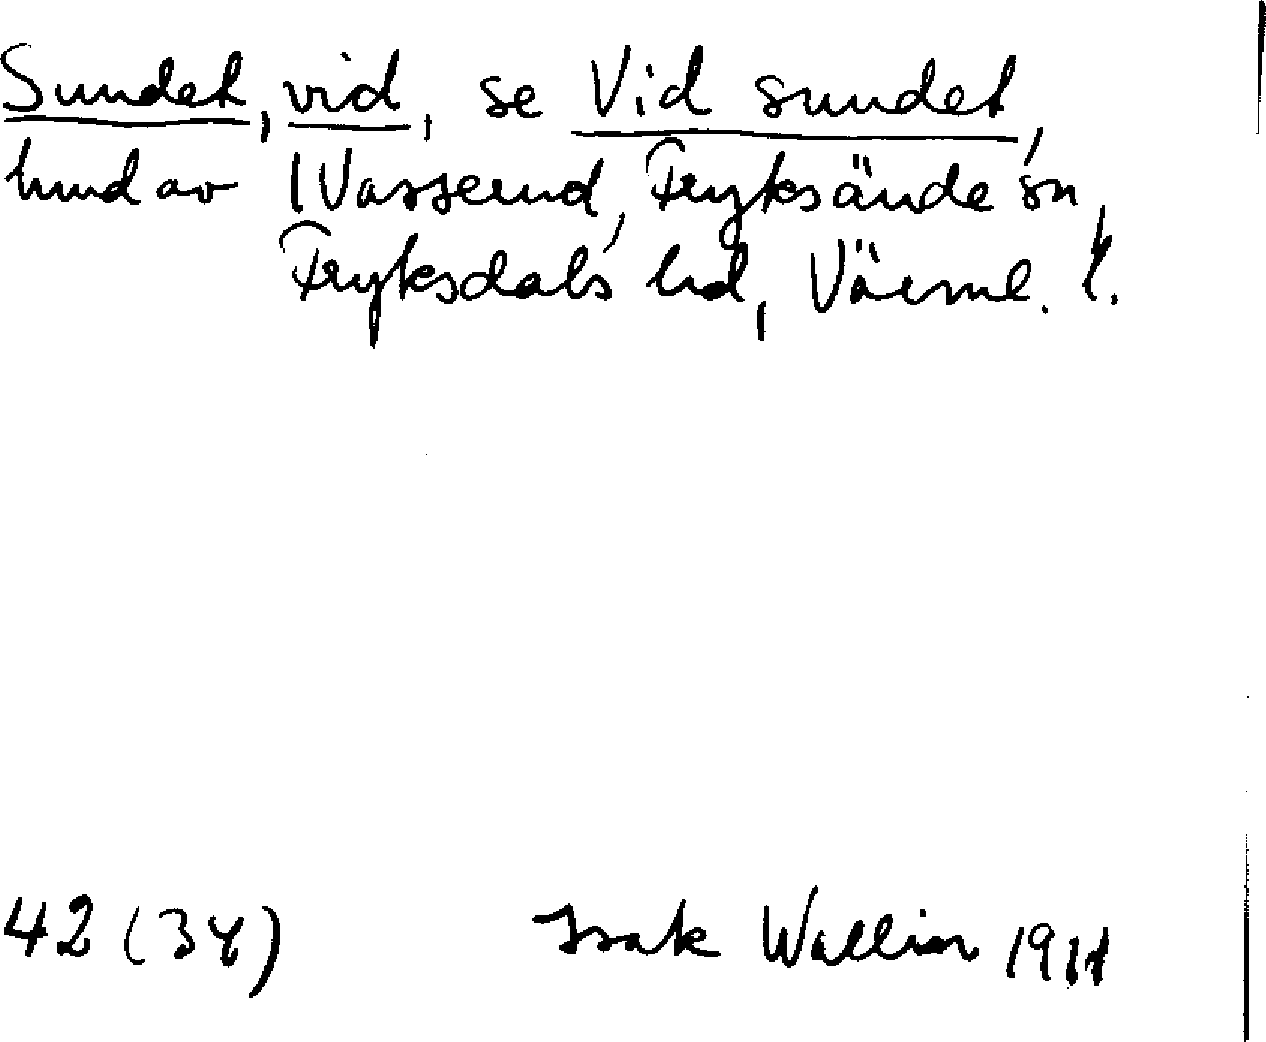 Sundet, vid, se Vid sundet,
hmd av 1 Vasserud, Fryksände sn,
Fryksdals hd, Värml. l.
42 (34)
Isak Wallin 1911